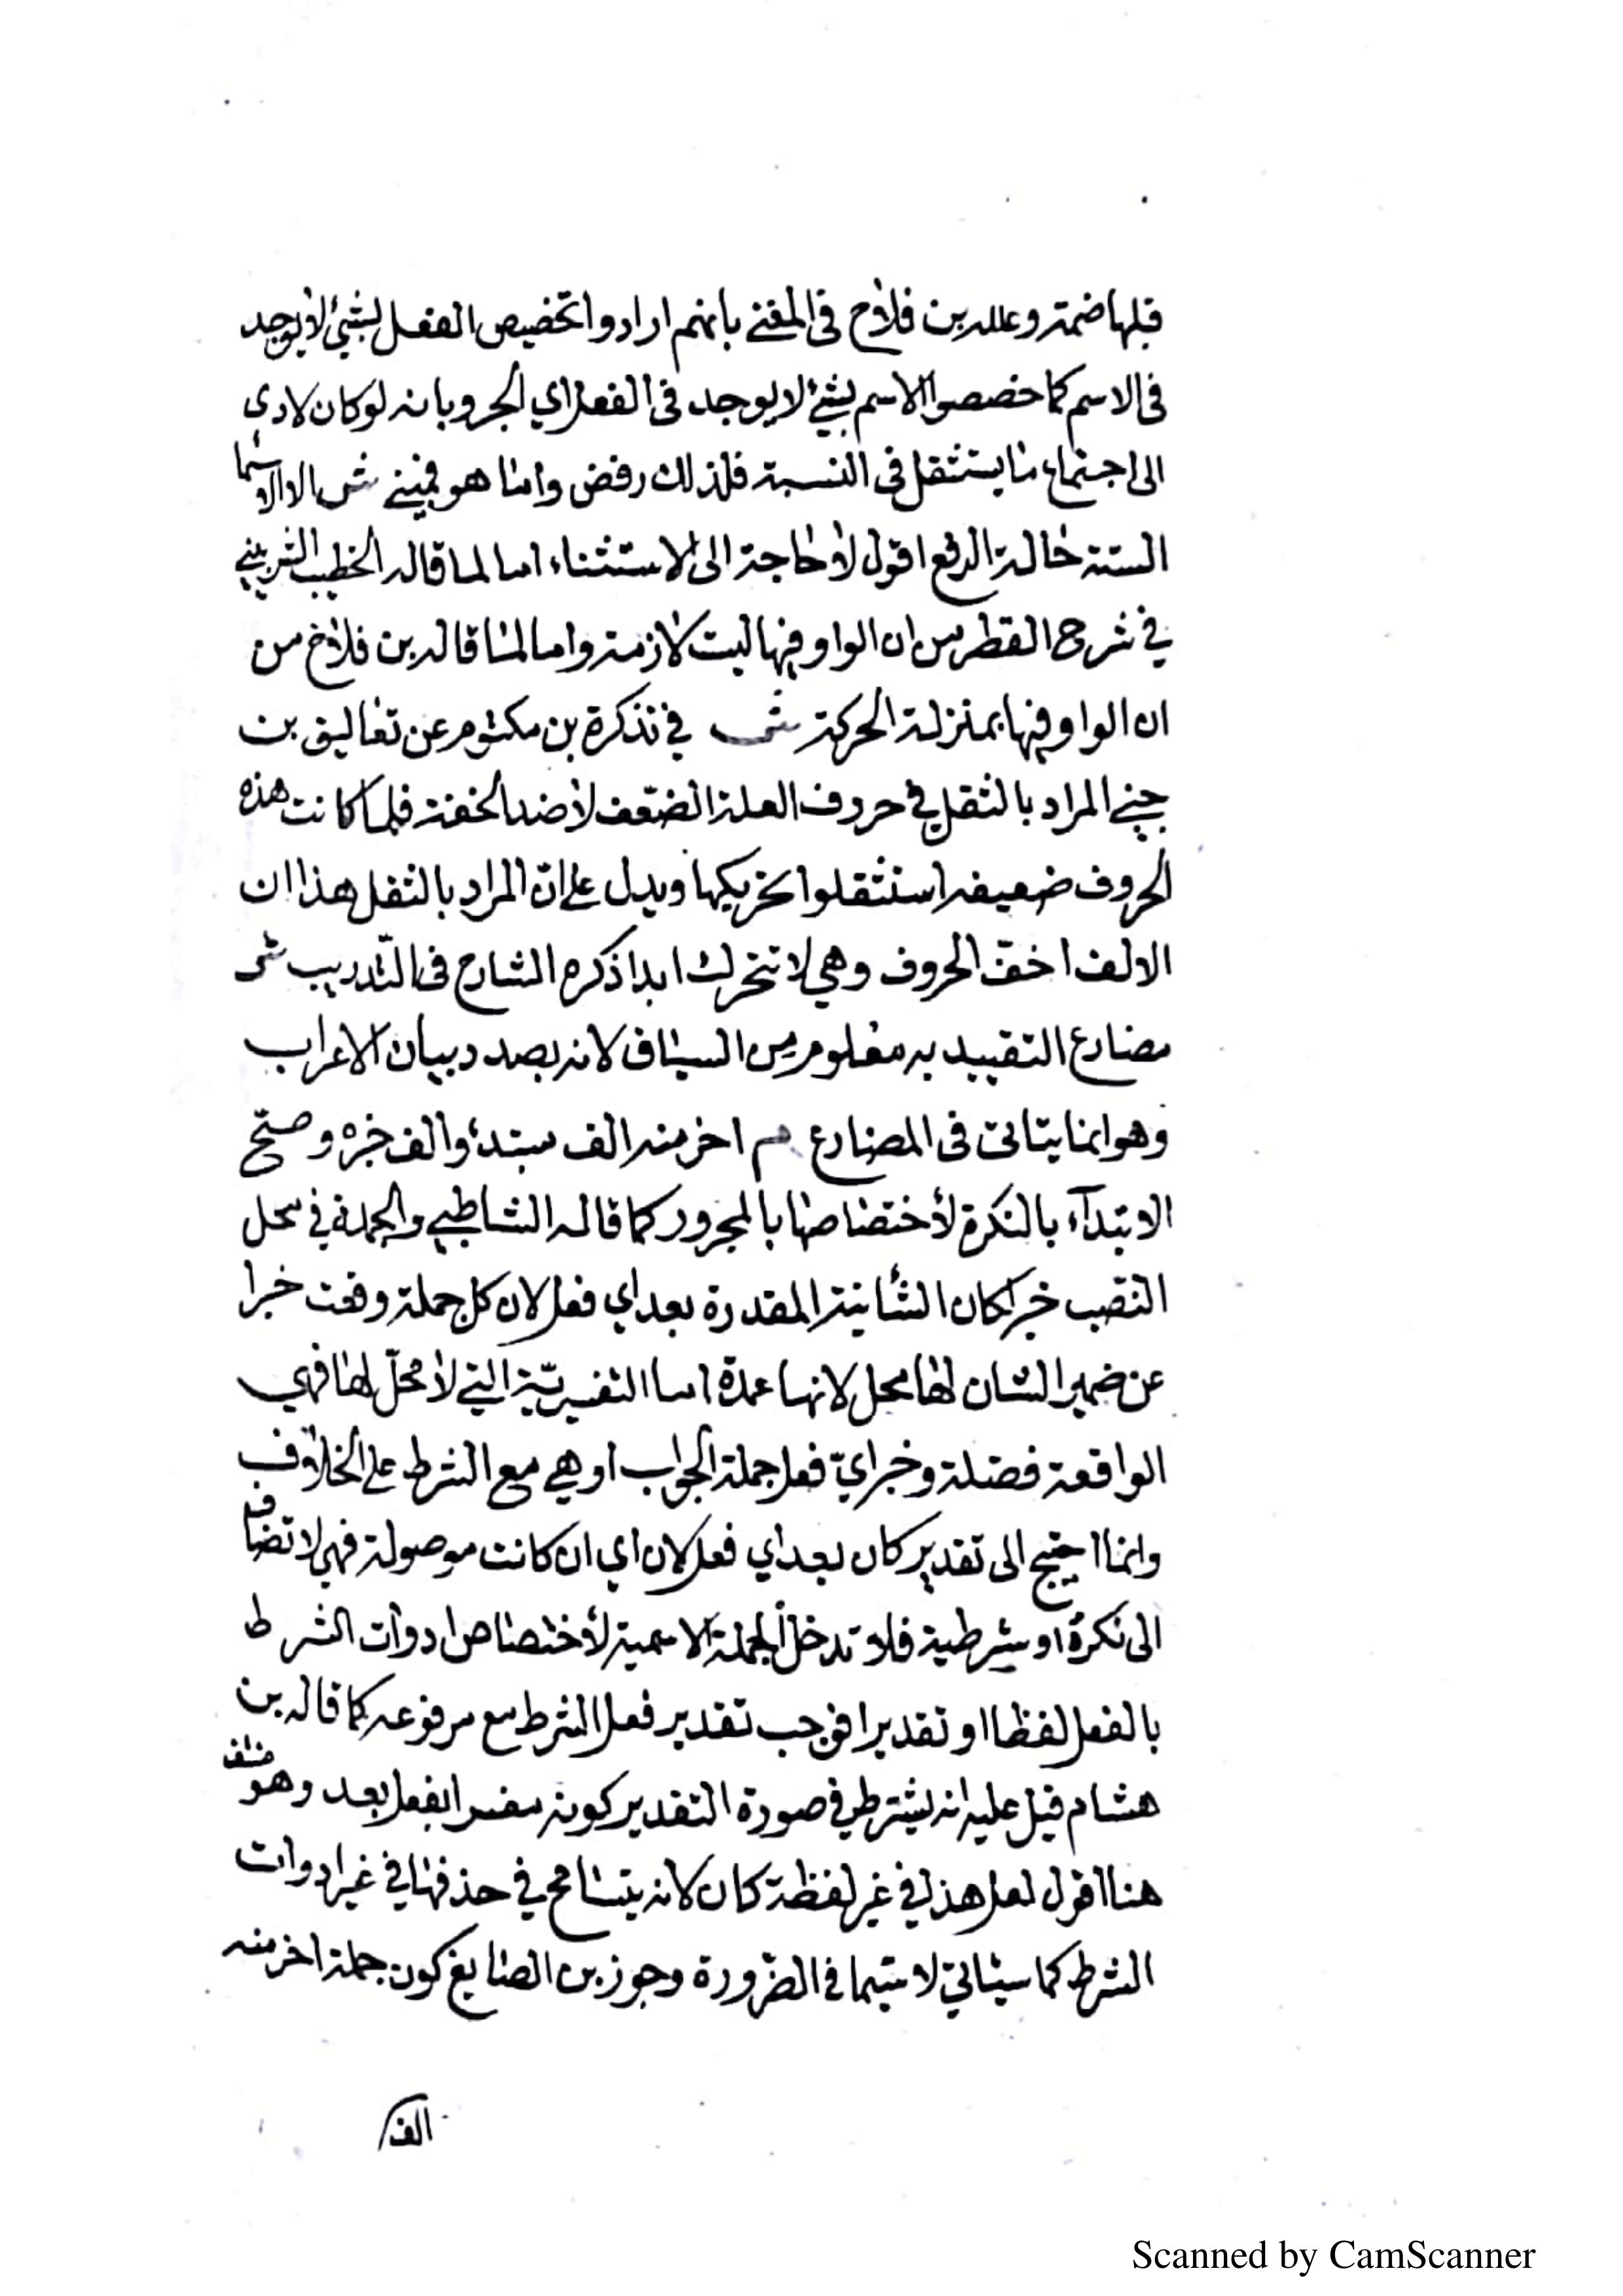 قبلها ضمة وعلله بن فلاح في المغني بانهم ارادوا تخصيص الفعل بشئ لا يوجد
في الاسم كما خصصوا الاسم بشئ لا يوجد في الفعل اي الجر وبانه لو كان لادى
الى اجتماع ما يستثقل في النسبة فلذلك رفض واما هو فمبني ش الا الاسما
الستة حالة الرفع اقول لا حاجة الى الاستثناء اما لما قاله الخطيب الشربيني
في شرح القطر من ان الواو فيها ليست لازمة واما لما قاله بن فلاح من
ان الواو فيها بمنزلة الحركة ش في تذكرة بن مكتوم عن تعاليق بن
جني المراد بالثقل في حروف العلة الضعف لا ضد الخفة فلما كانت هذه
الحروف ضعيفه استثقلوا تحريكها ويدل على ان المراد بالثقل هذا ان
الالف اخف الحروف وهي لا تتحرك ابدا ذكره الشارح في التدريب ش
مضارع التقييد به معلوم من السياق لانه بصدد بيان الاعراب
وهو انما يتاتى في المضارع م اخر منه الف مبتدء والف خبره وصح
الابتدآء بالنكرة لأختصاصها بالمجرور كما قاله الشاطبي والجملة في محل
النصب خبر لكان الشأنية المقدرة بعد اي فعل لان كل جملة وقعت خبرا
عن ضمير الشان لها محل لانها عمدة اما التفسيريّة التي لا محلّ لها فهي
الواقعة فضلة وخبر ايّ فعل جملة الجواب او هي مع الشرط على الخلاف
وانما احتيج الى تقدير كان بعد اي فعل لان اي ان كانت موصولة فهي لا تضاف
الى نكرة او شرطية فلا تدخل الجملة الاسمية لأختصاص ادوات الشرط
بالفعل لفظا او تقديرا فوجب تقدير فعل الشرط مع مرفوعه كما قاله بن
هشام قيل عليه انه يشترط في صورة التقدير كونه مفسرا بفعل بعد وهو منتف
هنا اقول لعل هذا في غير لفظة كان لانه يتسامح في حذفها في غير ادوات
الشرط كما سياتي لا سيما في الضرورة وجوز بن الصايغ كون جملة اخر منه
الف
Scanned by CamScanner